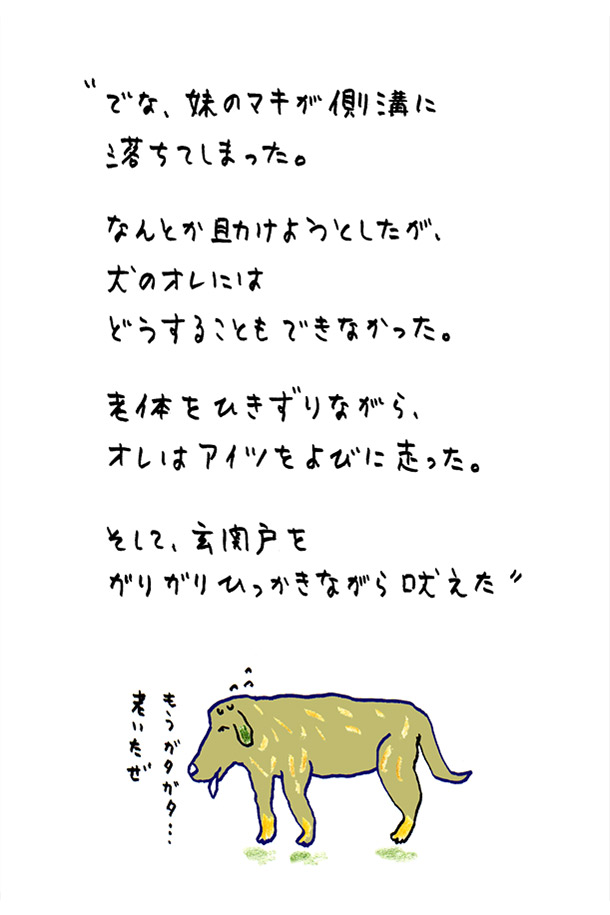 〝でな、妹のマキが側溝に
落ちてしまった。
なんとか助けようとしたが、
犬のオレには
どうすることもできなかった。
老体をひきずりながら、
オレはアイツをよびに走った。
そして、玄関戸を
がりがりひっかきながら吠えた〞
もうガタガタ…
老いたぜ